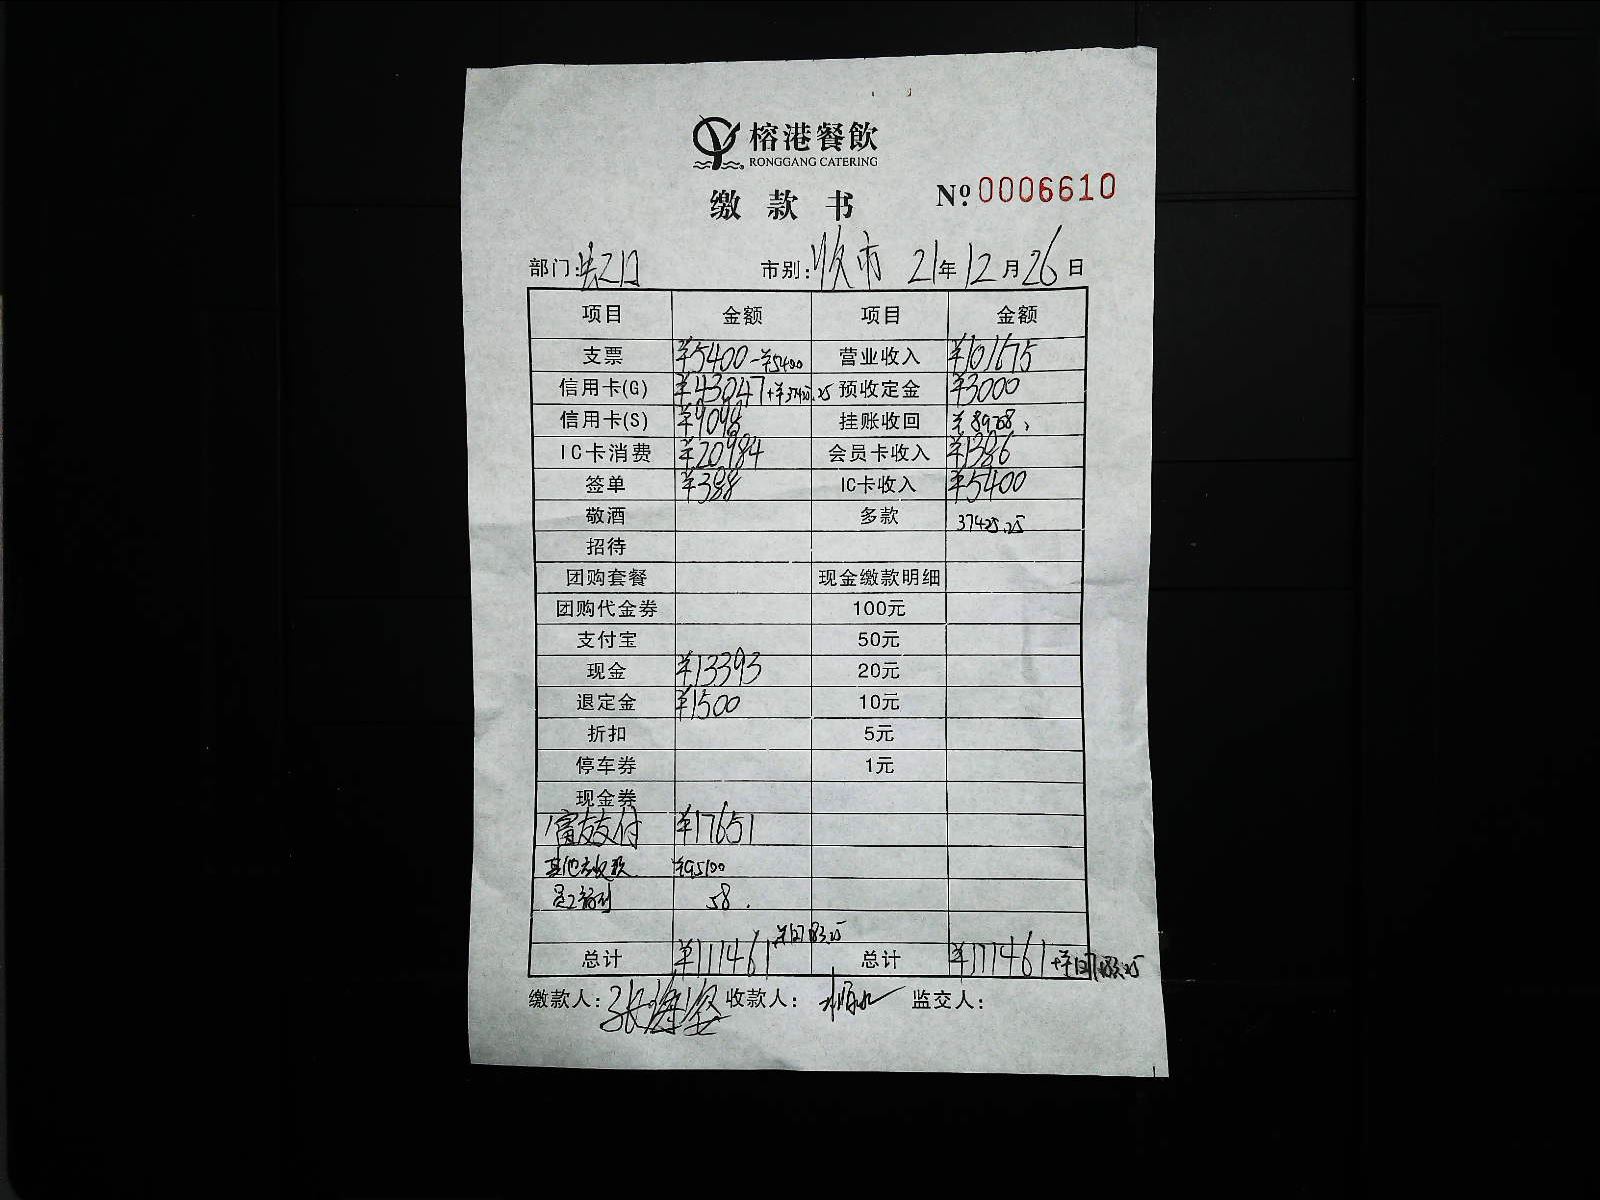 榕港餐飲
RONGGANG CATERING
缴款书 Nº 0006610
部门: 市别: 晚市 21年12月26日
项目 金额 项目 金额
支票 ¥5400 -¥5400 营业收入 ¥101675
信用卡(G) ¥43047 +¥37425.25 预收定金 ¥3000
信用卡(S) ¥9098 挂账收回 ¥89758
IC卡消费 ¥20984 会员卡收入 ¥1386
签单 ¥388 IC卡收入 ¥5400
敬酒 多款 37425.25
招待
团购套餐 现金缴款明细
团购代金券 100元
支付宝 50元
现金 ¥13393 20元
退定金 ¥1500 10元
折扣 5元
停车券 1元
现金券
富友支付 ¥17651
其他应收款 ¥95100
员工福利 58.
总计 ¥111461 +¥127183.25 总计 ¥111461 +¥127183.25
缴款人: 收款人: 监交人: